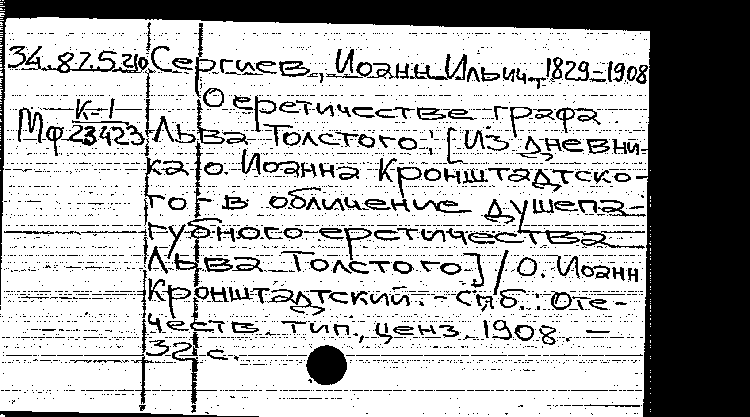 34.87.5.210 Сергиев, Иоанн Ильич, 1829-1908
К-1 О еретичестве графа
Мф 23423 Льва Толстого: [Из дневни-
ка о. Иоанна Кронштадтско-
го - в обличение душепа-
губного еретичества
Льва Толстого] / О. Иоанн
Кронштадтский. - Спб.: Оте-
честв. тип., ценз. 1908. -
32 с.